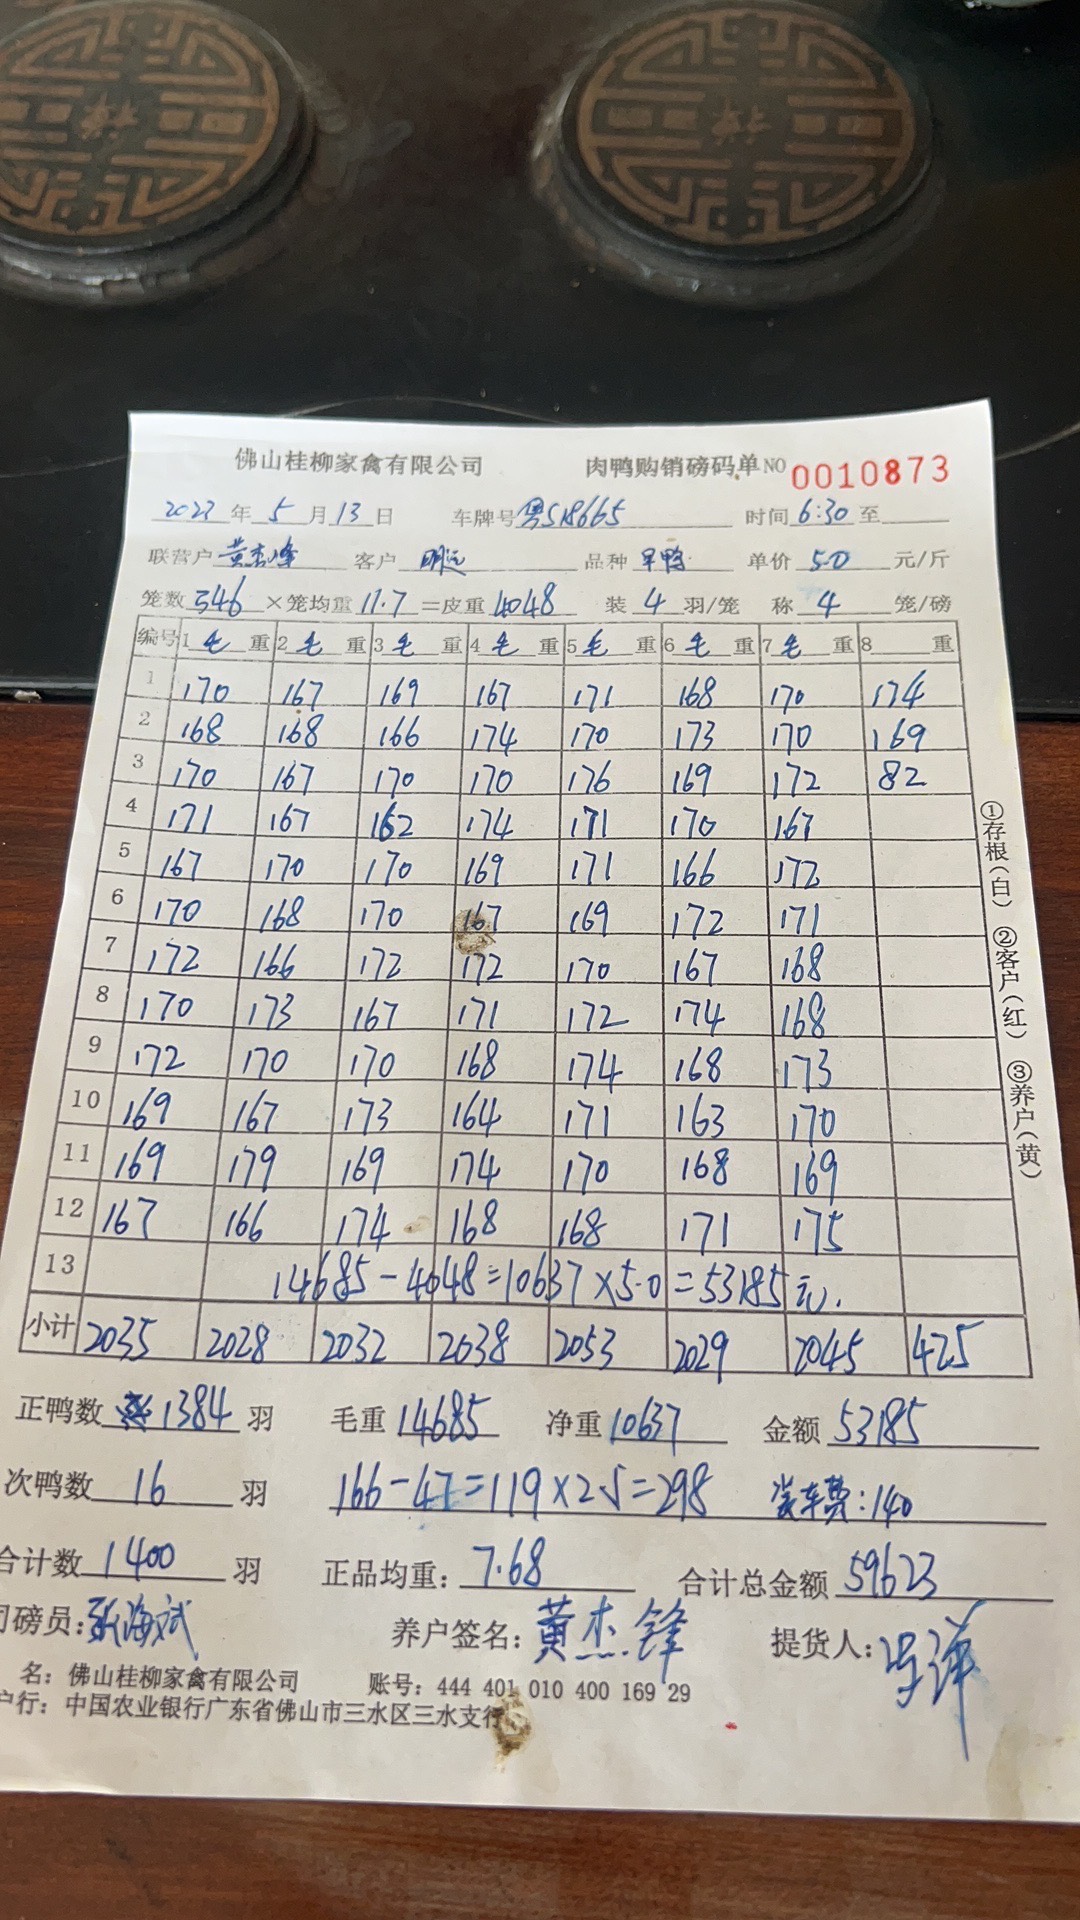 佛山桂柳家禽有限公司 肉鸭购销磅码单 NO 0010873
2023 年 5 月 13 日 车牌号 粤S18665 时间 6:30 至
联营户 黄杰峰 客户 明记 品种 旱鸭 单价 5.0 元/斤
笼数 346 ×笼均重 11.7 =皮重 4048 装 4 羽/笼 称 4 笼/磅
编号 1 毛 重 2 毛 重 3 毛 重 4 毛 重 5 毛 重 6 毛 重 7 毛 重 8 重
1 170 167 169 167 171 168 170 174
2 168 168 166 174 170 173 170 169
3 170 167 170 170 176 169 172 82
4 171 167 162 174 171 170 167
5 167 170 170 169 171 166 172
6 170 168 170 167 169 172 171
7 172 166 172 172 170 167 168
8 170 173 167 171 172 174 168
9 172 170 170 168 174 168 173
10 169 167 173 164 171 163 170
11 169 179 169 174 170 168 169
12 167 166 174 168 168 171 175
13 14685-4048=10637×5.0=53185元.
小计 2035 2028 2032 2038 2053 2029 2045 425
正鸭数 1384 羽 毛重 14685 净重 10637 金额 53185
次鸭数 16 羽 166-47=119×2.5=298 装车费:140
合计数 1400 羽 正品均重: 7.68 合计总金额 59623
司磅员: 张海斌 养户签名: 黄杰锋 提货人:
名: 佛山桂柳家禽有限公司 账号: 444 401 010 400 169 29
户行: 中国农业银行广东省佛山市三水区三水支行
①存根(白) ②客户(红) ③养户(黄)